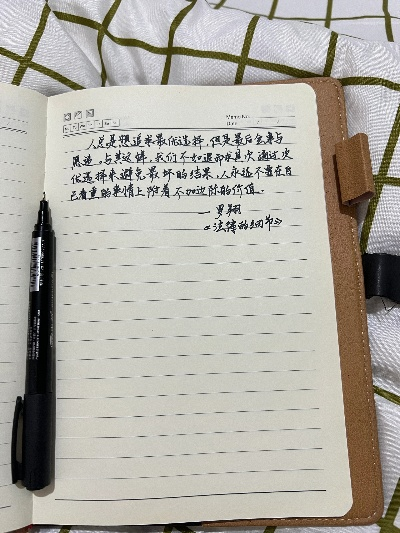 Memo No.
Date / /
人总是想追求最优选择,但是最后会事与
愿违。与其这样,我们不如退而求其次通过次
优选择来避免最坏的结果,人永远不要在自
己看重的事情上附着不加边际的价值.
— 罗翔
《法律的细节》